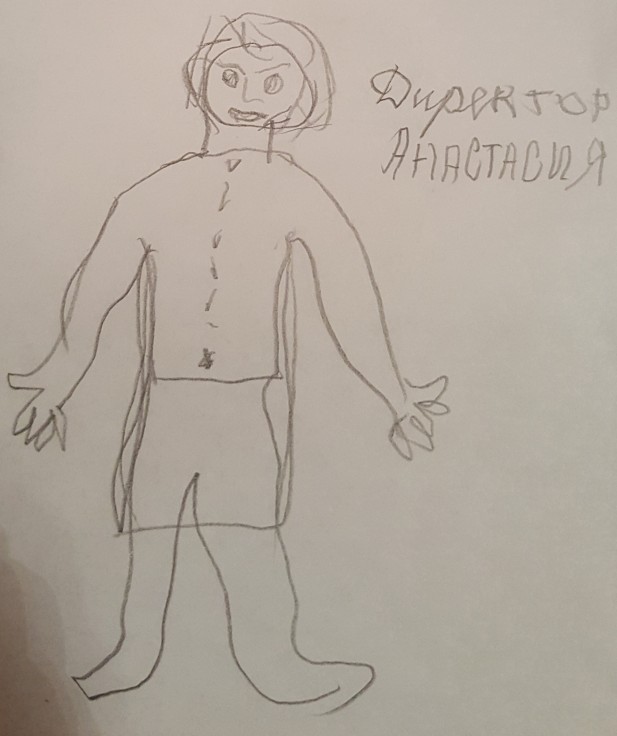 Директор
АНАСТАСИЯ